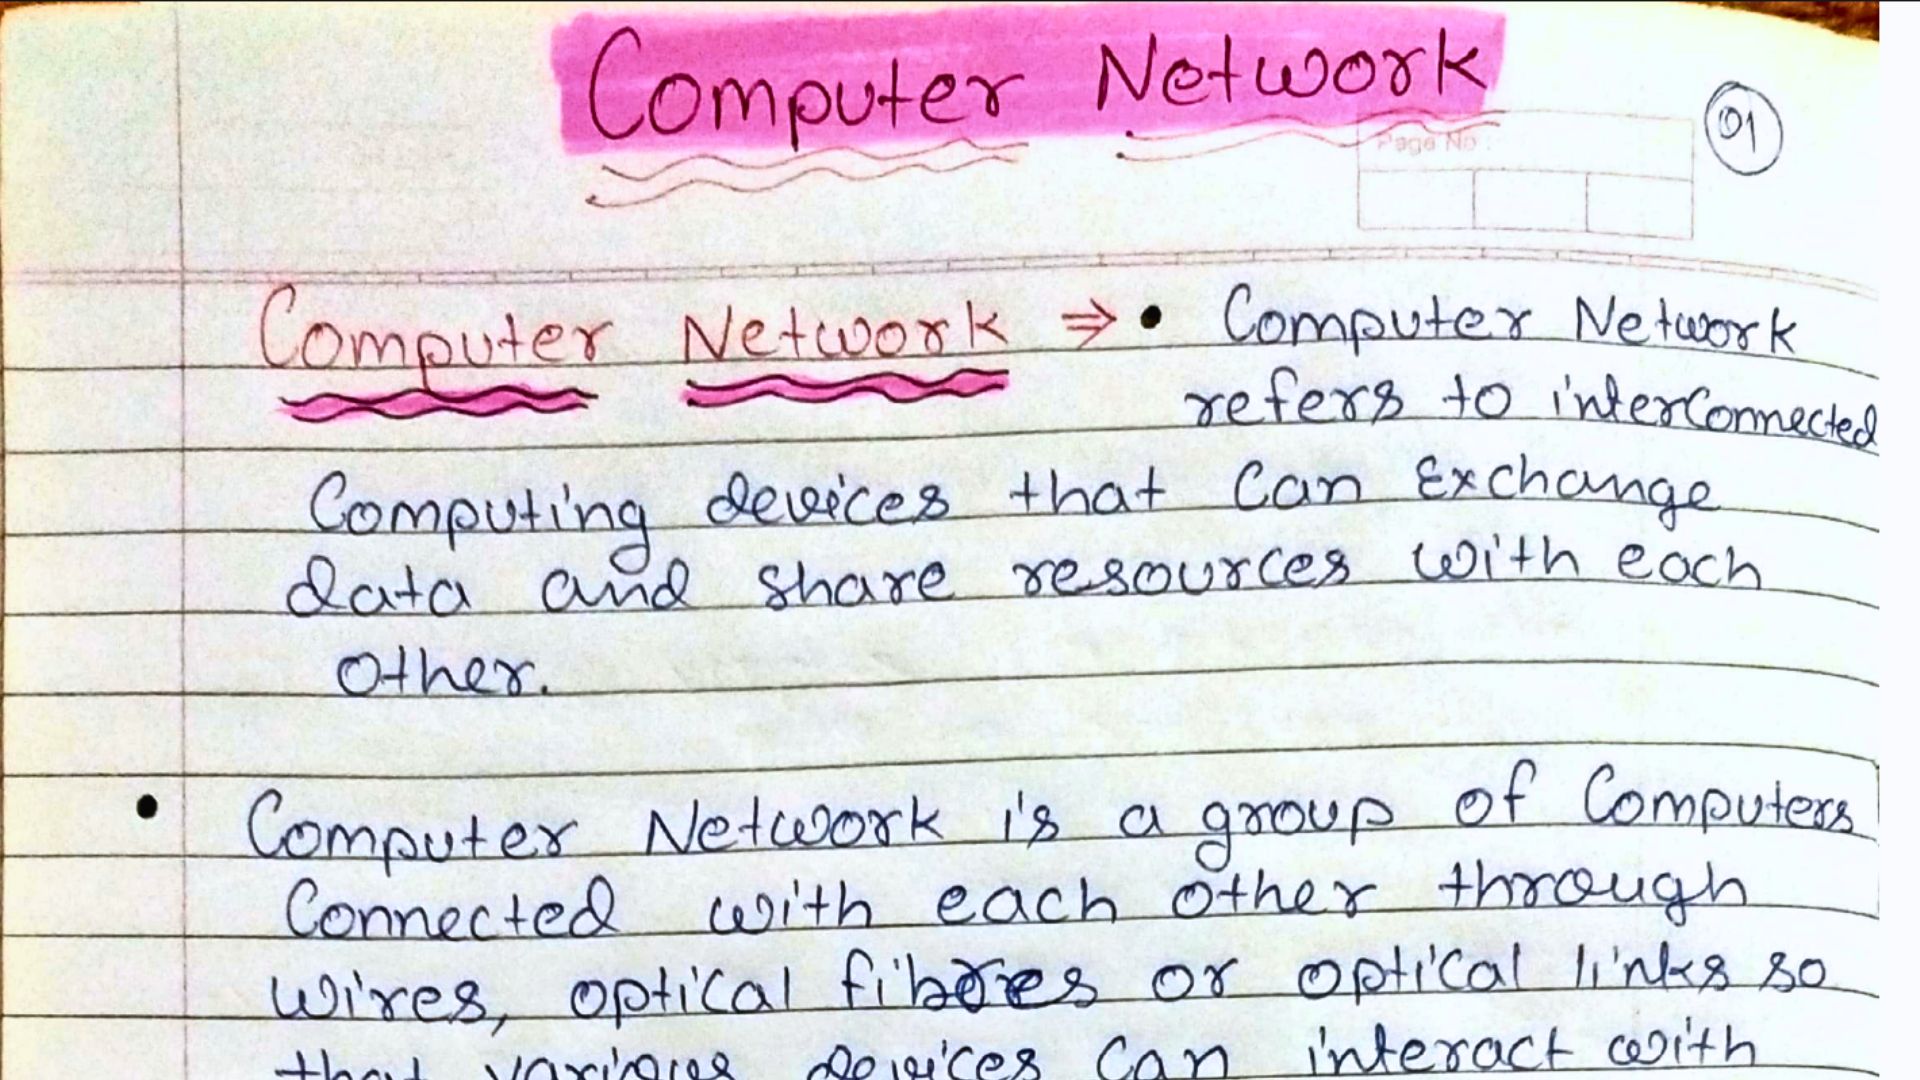 Computer Network
01
Page No :
Computer Network ⇒ • Computer Network
refers to interConnected
Computing devices that Can Exchange
data and share resources with each
other.
• Computer Network is a group of Computers
Connected with each other through
wires, optical fibres or optical links so
that various devices Can interact with